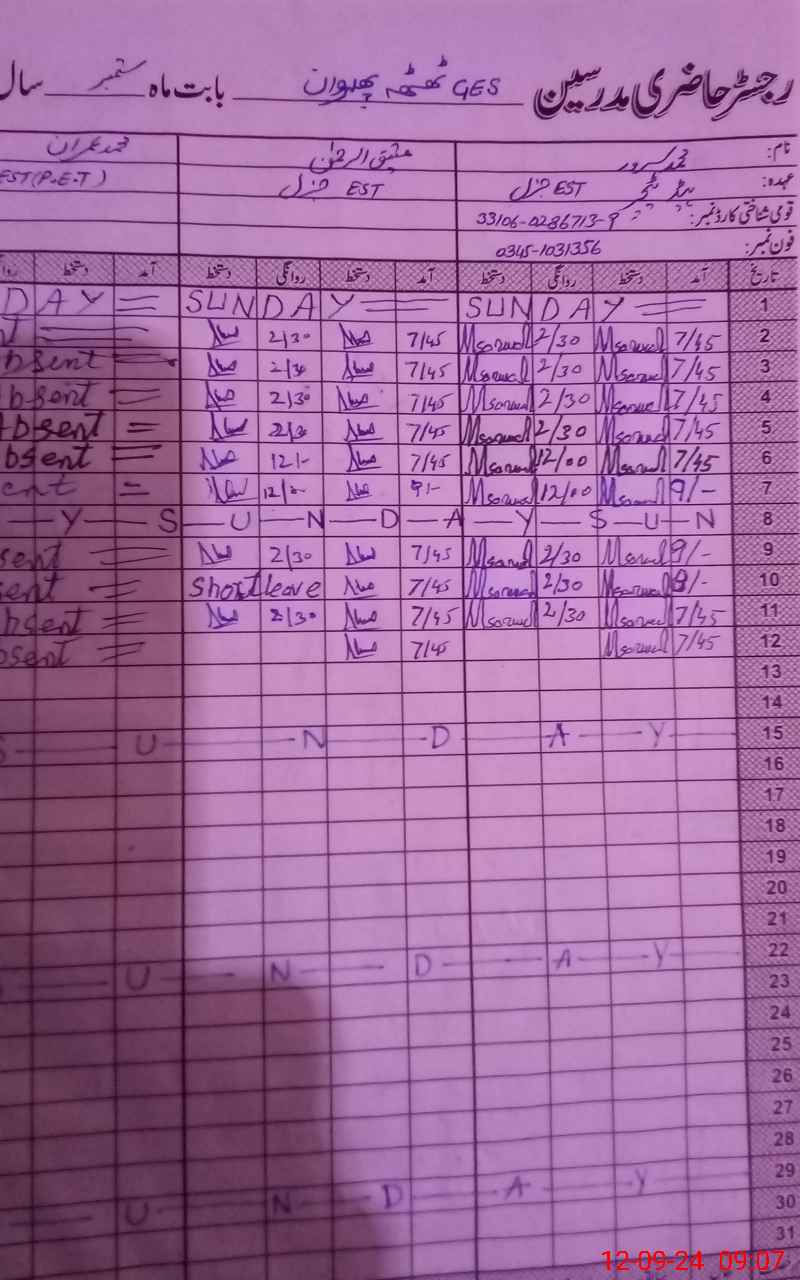 رجسٹر حاضری مدرسین GES ٹھٹھہ پھلوان بابت ماہ ستمبر سال
نام: محمد سرور عتیق الرحمٰن محمد عمران
عہدہ: ہیڈ ٹیچر EST جنرل EST جنرل EST (P.E.T)
قومی شناختی کارڈ نمبر: 33106-0286713-9
فون نمبر: 0345-1031356
تاریخ آمد دستخط روانگی دستخط آمد دستخط روانگی دستخط آمد دستخط
1 SUNDAY SUNDAY DAY
2 7/45 Msarwar 2/30 Msarwar 7/45 2/30
3 7/45 Msarwar 2/30 Msarwar 7/45 2/30 bsent
4 7/45 Msarwar 2/30 Msarwar 7/45 2/30 bsent
5 7/45 Msarwar 2/30 Msarwar 7/45 2/30 bsent
6 7/45 Msarwar 12/00 Msarwar 7/45 12/- bsent
7 9/- Msarwar 12/00 Msarwar 9/- ent
8 Y S U N D A Y S U N
9 9/- Msarwar 2/30 Msarwar 7/45 2/30 sent
10 Msarwar 2/30 Msarwar 7/45 Short leave sent
11 7/45 Msarwar 2/30 Msarwar 7/45 2/30 bsent
12 7/45 Msarwar 7/45 bsent
13
14
15 S U N D A Y
16
17
18
19
20
21
22 U N D A Y
23
24
25
26
27
28
29 U N D A Y
30
31
12-09-24 09:07